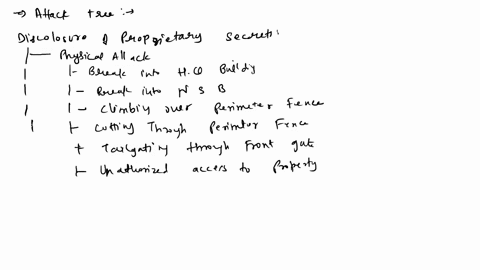 → Attack tree :→
Disclosure of Proprietary Secrets
|— Physical Attack
|- Break into H.Q Building
|- Break into N S B
|- Climbing over Perimeter Fence
|- Cutting Through Perimeter Fence
+ Tailgating through Front gate
|- Unauthorized access to Property